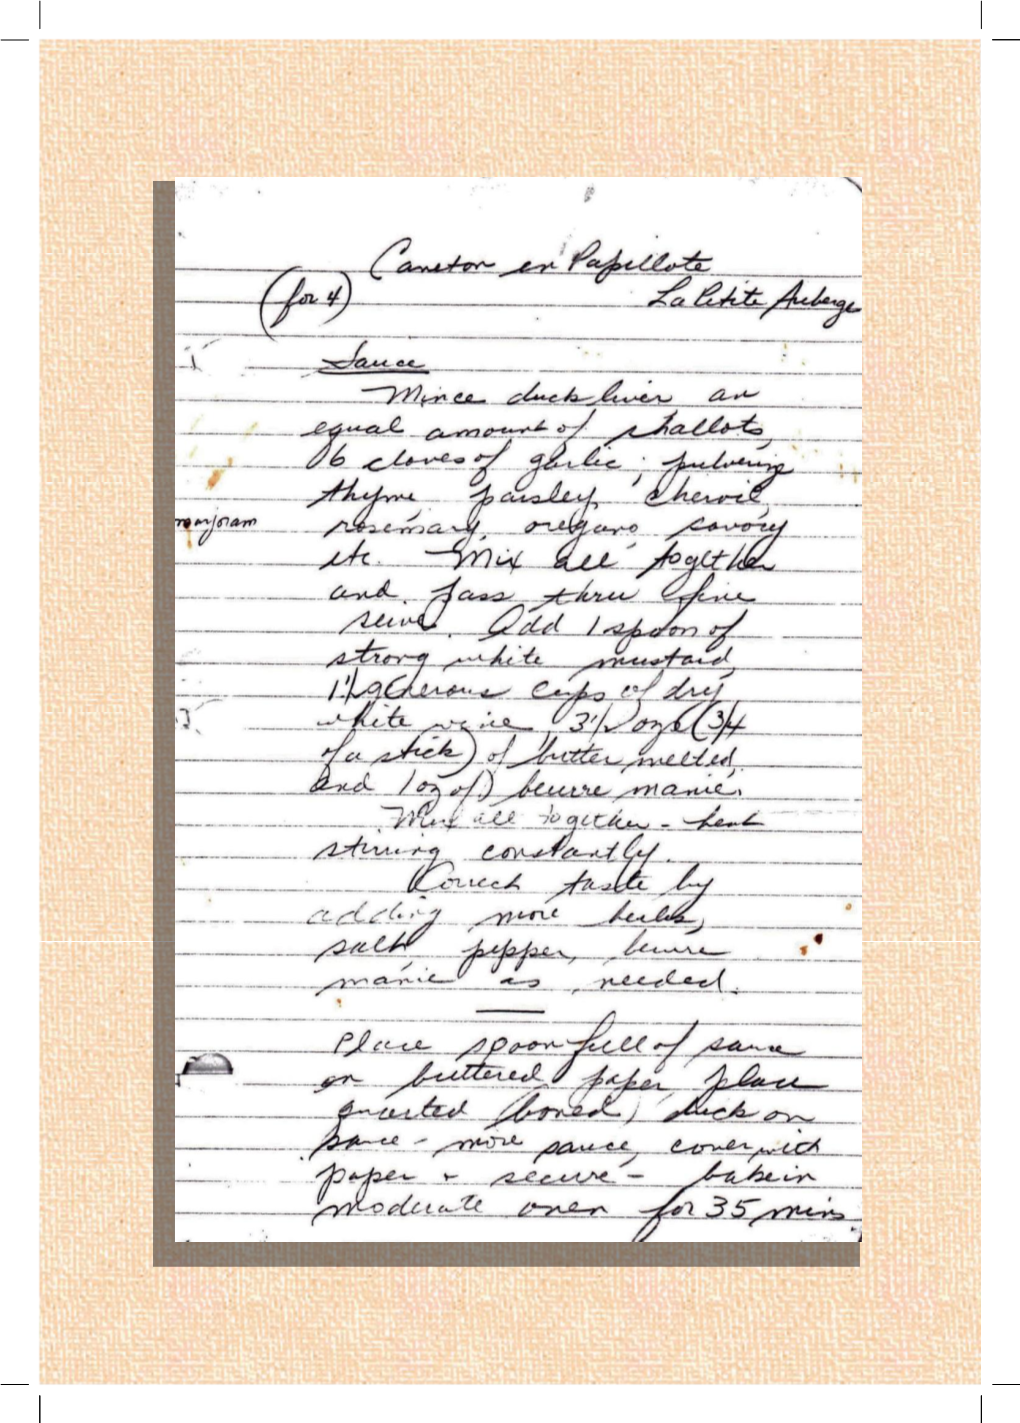 Caneton en Papillote
(for 4) La Petite Auberge
Sauce
Mince duck liver an
equal amount of shallots,
6 cloves of garlic; pulverize
thyme, parsley, chervil,
marjoram rosemary, oregano, savory
etc. Mix all together
and pass thru fine
seive. Add 1 spoon of
strong white mustard,
1 1/2 generous cups of dry
white wine, 3 1/2 ozs (3/4
of a stick) of butter melted,
and 1 oz of) beurre manie.
Mix all together - heat
stirring constantly.
Correct taste by
adding more herbs,
salt, pepper, beurre
manie as needed.
Place spoonfull of sauce
on buttered paper, place
quarted (boned) duck on
sauce - more sauce, cover with
paper + secure - bake in
moderate oven for 35 mins.